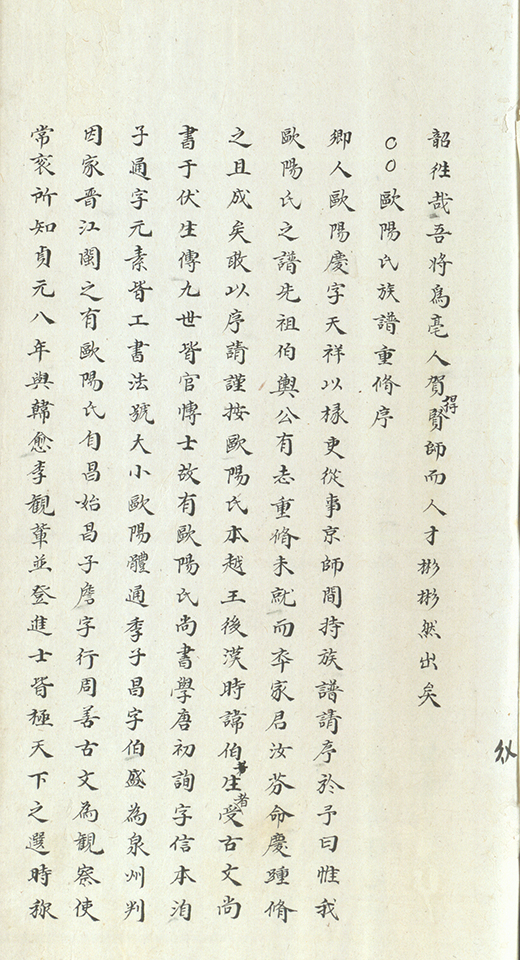 韶徃哉吾将爲亳人賀得賢師而人才彬彬然出矣
○○歐陽氏族譜重脩序
郷人歐陽慶字天祥以椽吏從事京師間持族譜請序於予曰惟我
歐陽氏之譜先祖伯輿公有志重脩未就而卒家君汝芬命慶踵脩
之且成矣敢以序請謹按歐陽氏本越王後漢時諱伯生者受古文尚
書于伏生傳九世皆官愽士故有歐陽氏尚書學唐初詢字信本洎
子通字元素皆工書法號大小歐陽體通季子昌字伯盛為泉州判
因家晋江閩之有歐陽氏自昌始昌子詹字行周善古文為觀察使
常衮所知貞元八年與韓愈李觀軰並登進士皆極天下之選時称